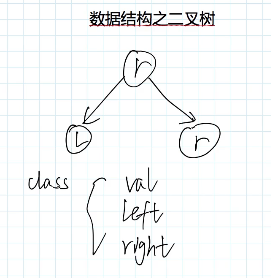 数据结构之二叉树
r
L r
class { val
left
right